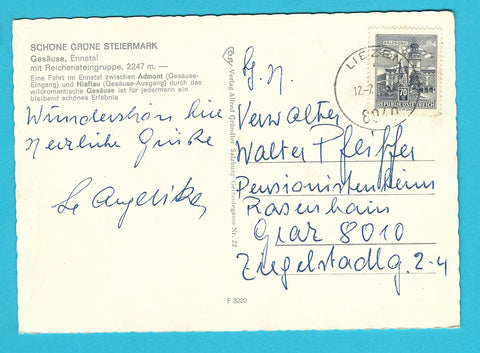 SCHÖNE GRÜNE STEIERMARK
Gesäuse, Ennstal
mit Reichensteingruppe, 2247 m. —
Eine Fahrt im Ennstal zwischen Admont (Gesäuse-
Eingang) und Hieflau (Gesäuse-Ausgang) durch das
wildromantische Gesäuse ist für jedermann ein
bleibend schönes Erlebnis
Wunderschön hier
Herzliche Grüße
Angelika
Verlag Alfred Gründler Salzburg, Getreidegasse Nr. 22
F 3220
LIEZEN
12.-7.
8940
SALZBURG
70
REPUBLIK ÖSTERREICH
Verwalter
Walter Pfeiffer
Pensionistenheim
Rosenhain
Graz 8010
Ziegelstadlg. 2-4